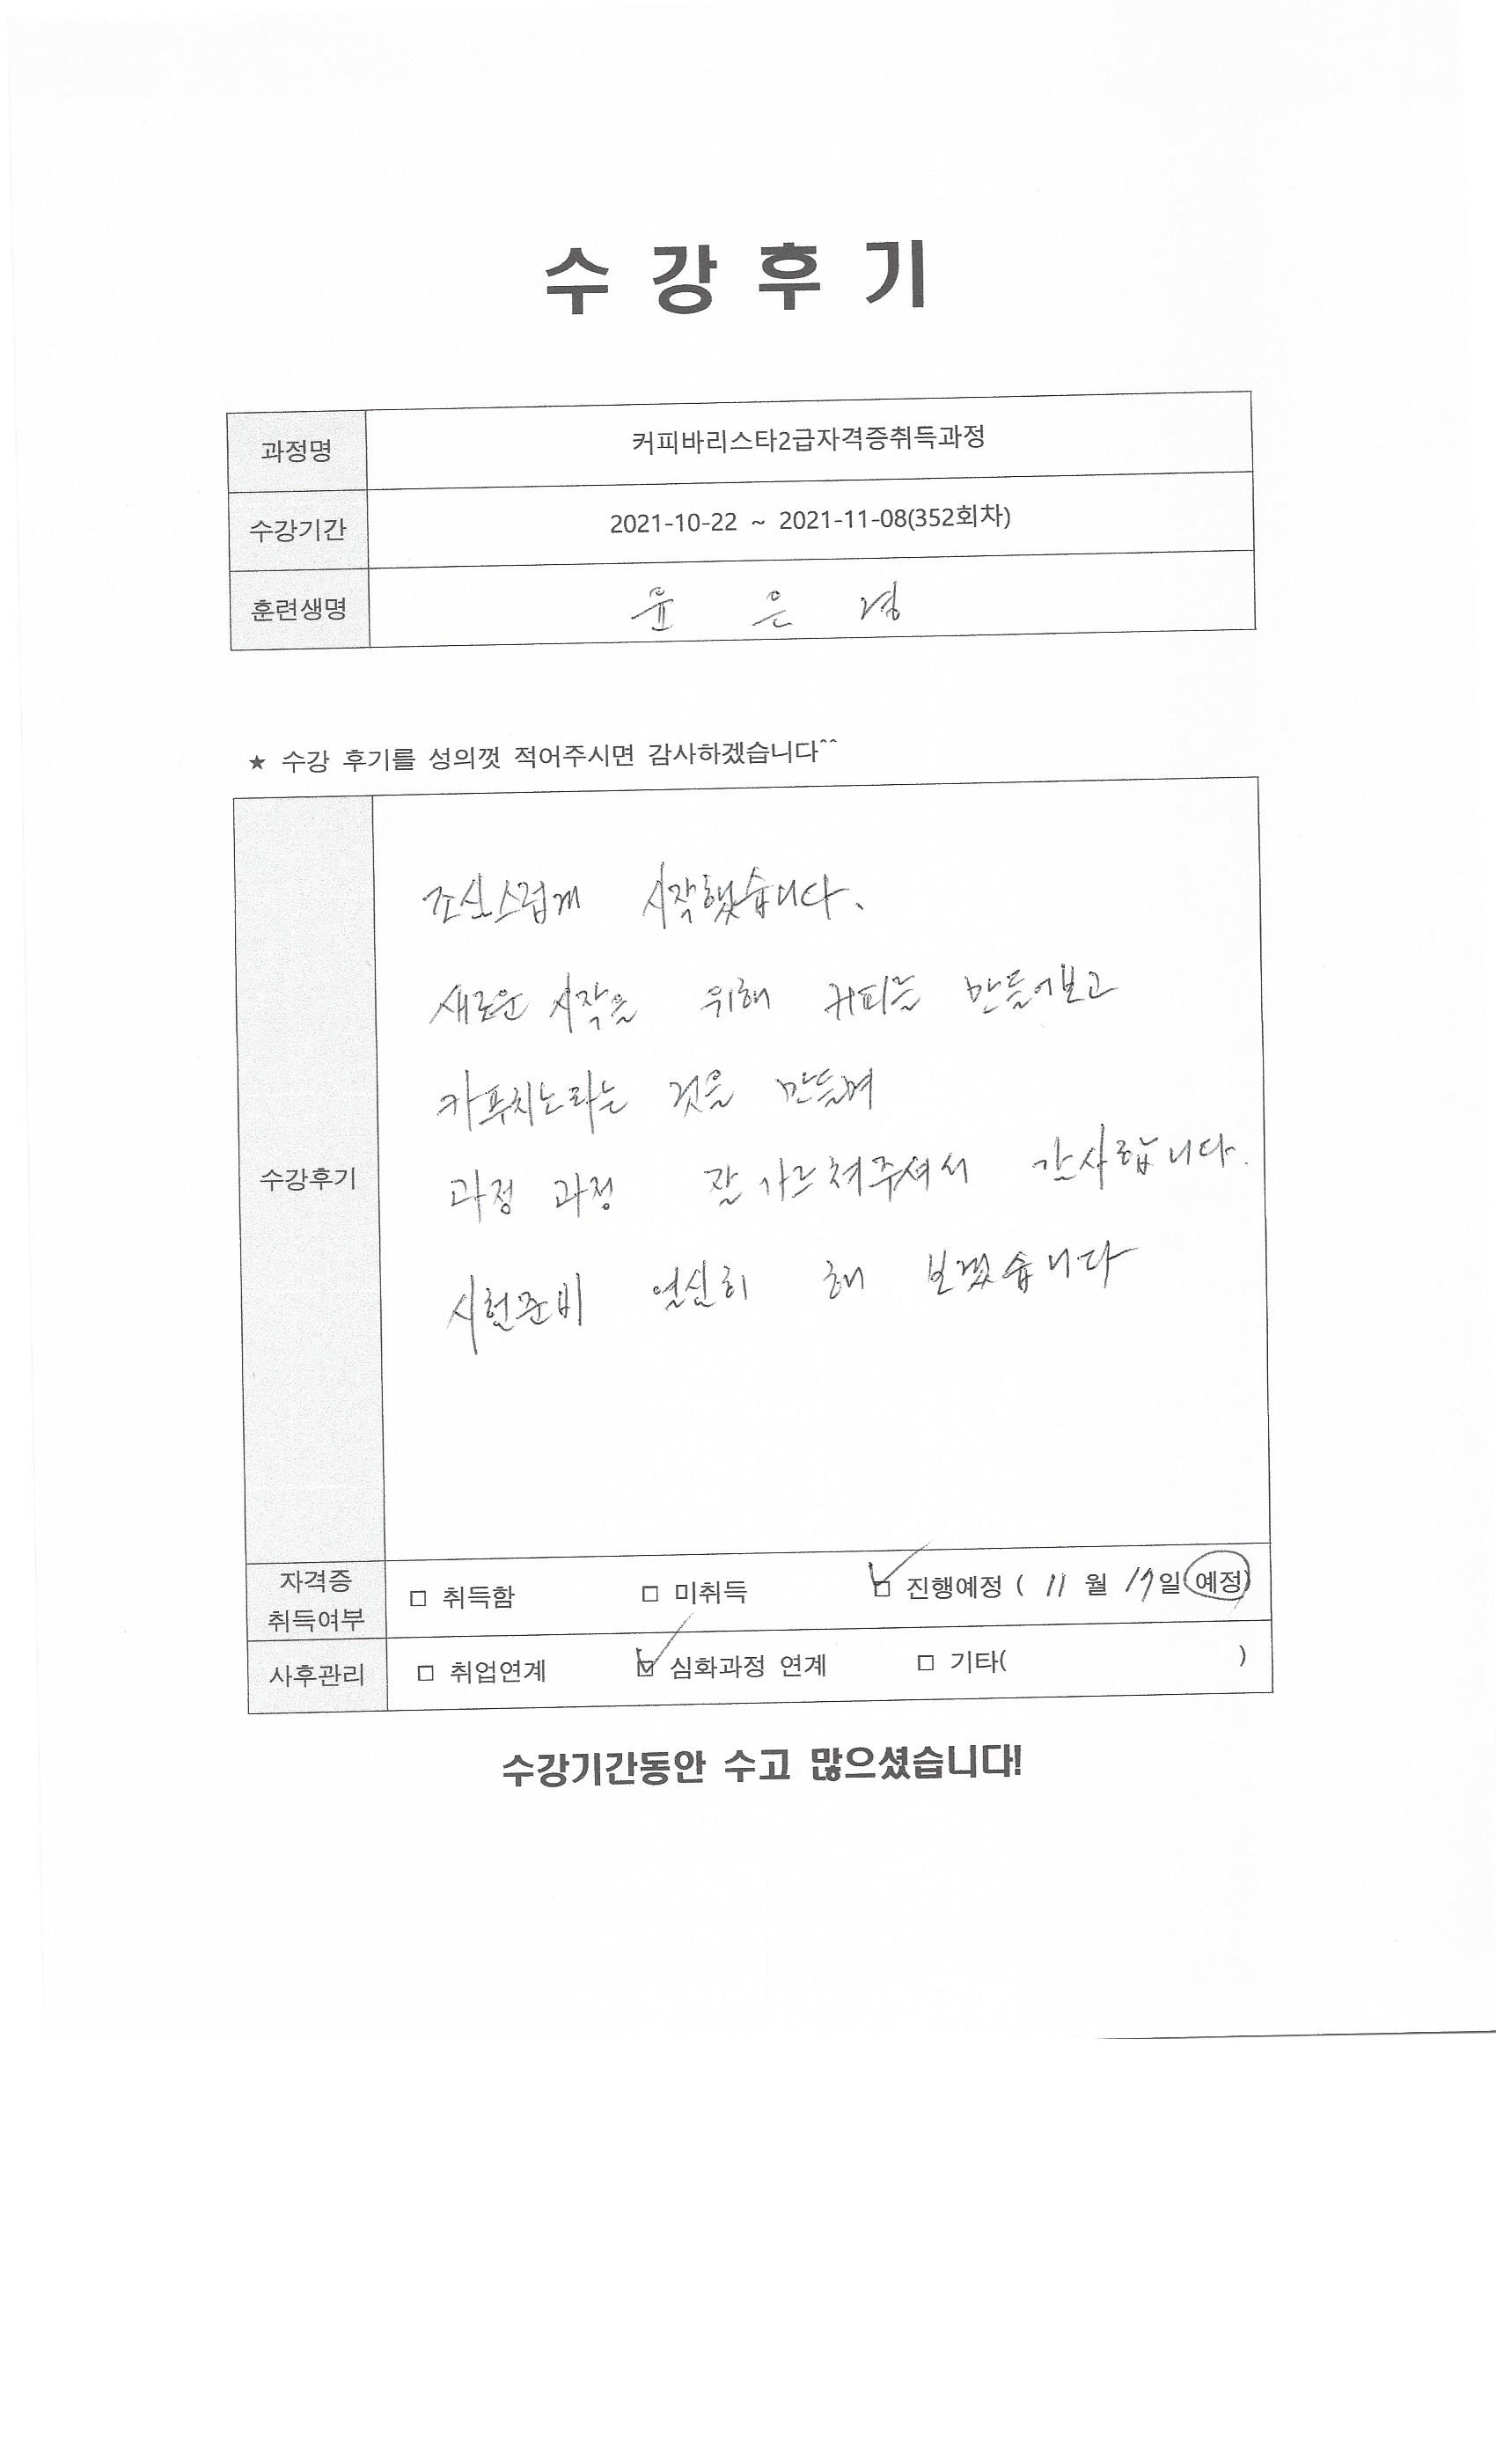 수강후기
과정명 커피바리스타2급자격증취득과정
수강기간 2021-10-22 ~ 2021-11-08(352회차)
훈련생명 윤은경
★ 수강 후기를 성의껏 적어주시면 감사하겠습니다^^
조심스럽게 시작했습니다.
새로운 시작을 위해 커피를 만들어보고
카푸치노라는 것을 만들며
과정 과정 잘 가르쳐주셔서 감사합니다.
수강후기
시험준비 열심히 해 보겠습니다
자격증 취득여부 □ 취득함 □ 미취득 ☑ 진행예정 ( 11 월 17일 예정)
사후관리 □ 취업연계 ☑ 심화과정 연계 □ 기타( )
수강기간동안 수고 많으셨습니다!